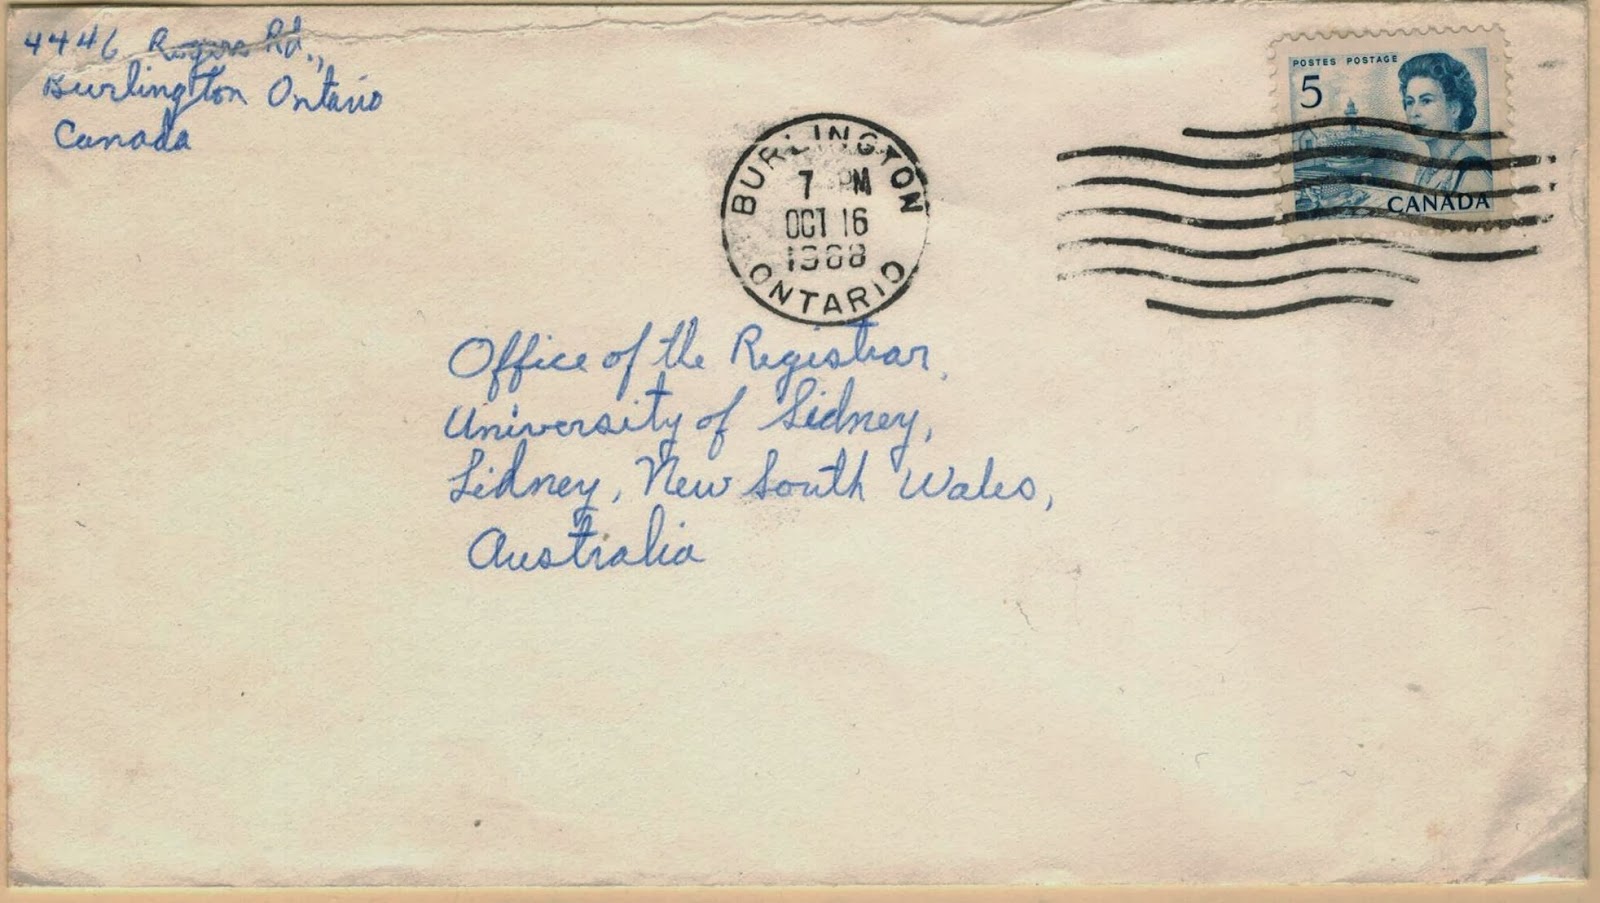 4446 Rogers Rd.,
Burlington Ontario
Canada
POSTES POSTAGE
5
CANADA
BURLINGTON
7 PM
OCT 16
1968
ONTARIO
Office of the Registrar,
University of Sidney,
Sidney, New South Wales,
Australia